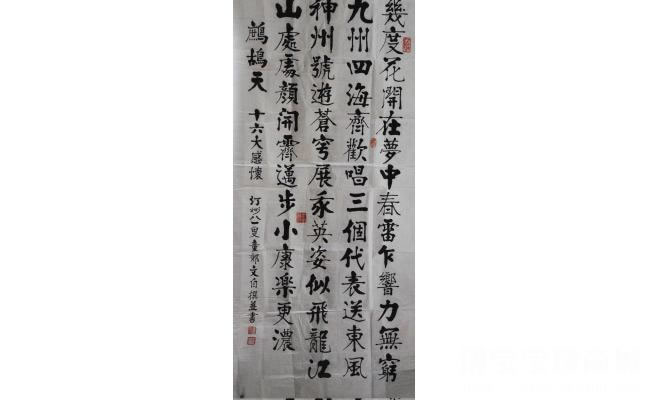 幾度花開在夢中春雷乍響力無窮
九州四海齊歡唱三個代表送東風
神州號遊蒼穹展英姿似飛龍江
山處處顏開霽邁步小康樂更濃
鷓鴣天 十六大感懷 汀州八一叟童文自撰並書